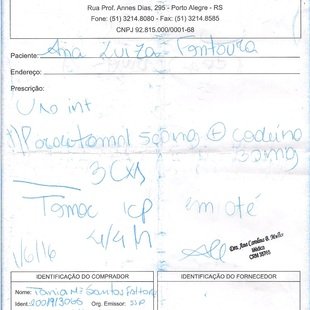 Rua Prof. Annes Dias, 295 - Porto Alegre - RS
Fone: (51) 3214.8080 - Fax: (51) 3214.8585
CNPJ 92.815.000/0001-68
Paciente: Ana Luiza Fontoura
Endereço:
Prescrição:
Uso int
1) Paracetamol 500mg + codeina
30mg
3 cxs
Tomar 1cp em até
4/4h
1/6/16
Dra. Ana Carolina B.
Médica
CRM
IDENTIFICAÇÃO DO COMPRADOR
IDENTIFICAÇÃO DO FORNECEDOR
Nome: Tania M. Santos
Ident: Org. Emissor: SSP